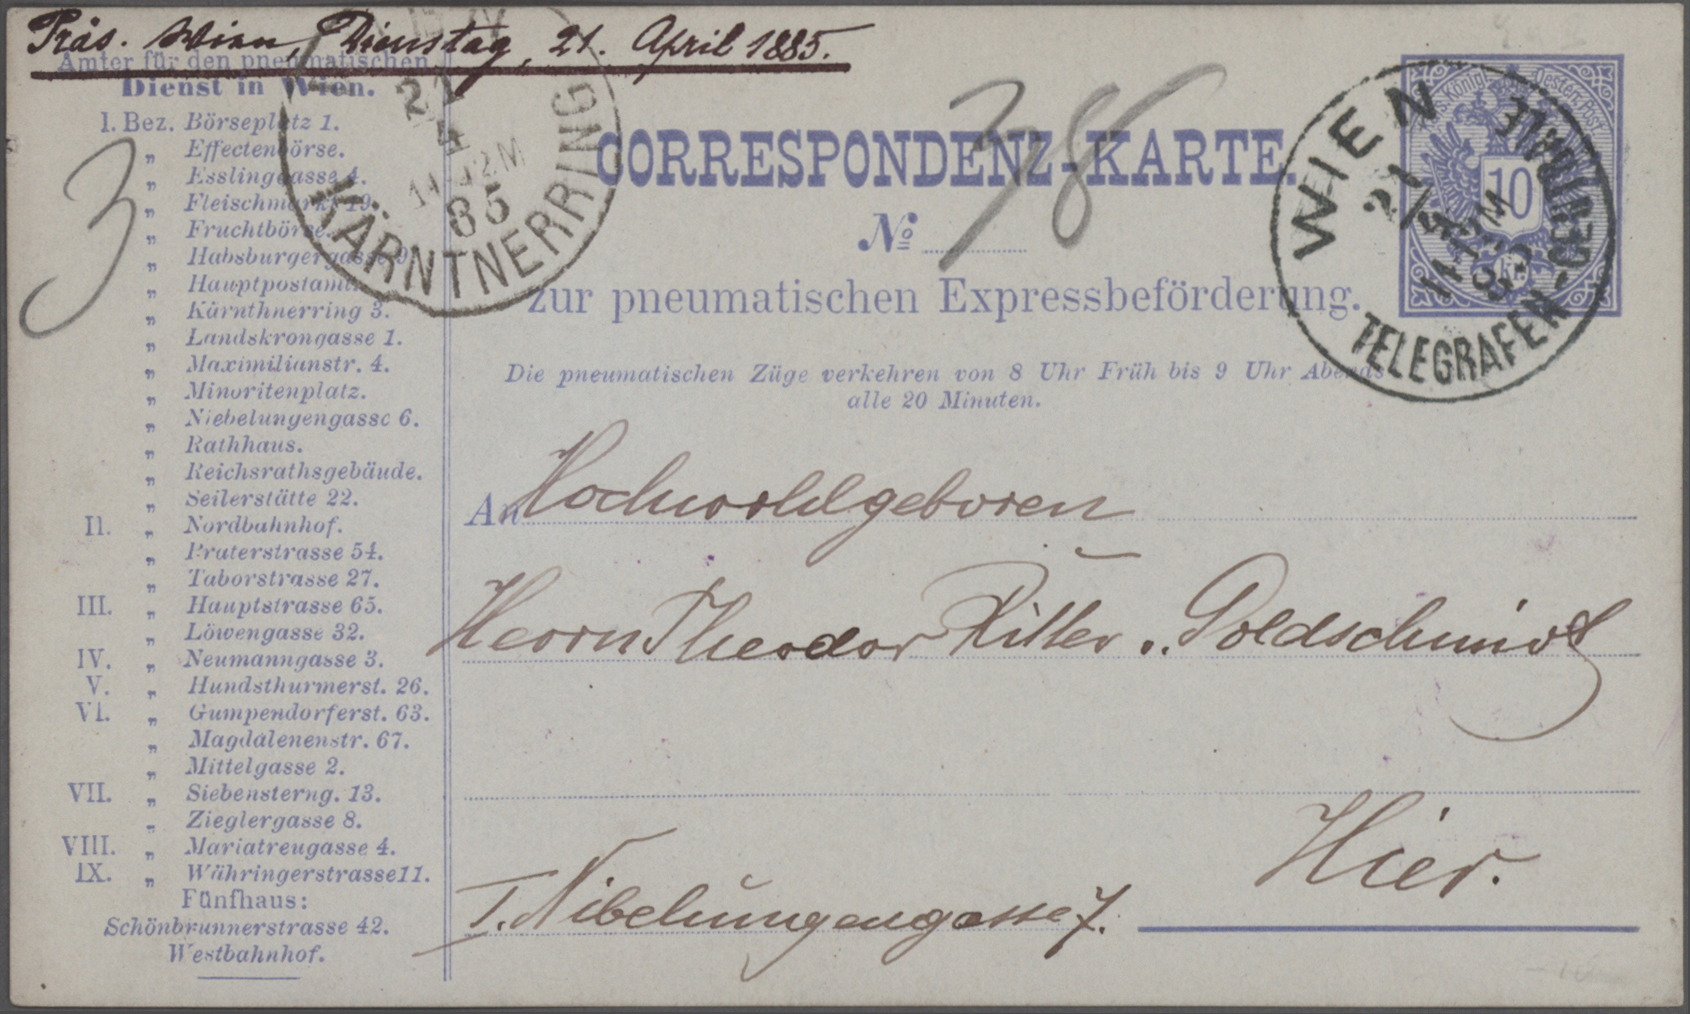 Präs. Wien, Dienstag, 21. April 1885.
Ämter für den pneumatischen
Dienst in Wien.
I. Bez. Börseplatz 1.
„ Effectenbörse.
„ Esslinggasse 4.
„ Fleischmarkt 19.
„ Fruchtbörse.
„ Habsburgergasse 9.
„ Hauptpostamt.
„ Kärnthnerring 3.
„ Landskrongasse 1.
„ Maximilianstr. 4.
„ Minoritenplatz.
„ Niebelungengasse 6.
„ Rathhaus.
„ Reichsrathsgebäude.
„ Seilerstätte 22.
II. „ Nordbahnhof.
„ Praterstrasse 54.
„ Taborstrasse 27.
III. „ Hauptstrasse 65.
„ Löwengasse 32.
IV. „ Neumanngasse 3.
V. „ Hundsthurmerst. 26.
VI. „ Gumpendorferst. 63.
„ Magdalenenstr. 67.
„ Mittelgasse 2.
VII. „ Siebensterng. 13.
„ Zieglergasse 8.
VIII. „ Mariatreugasse 4.
IX. „ Währingerstrasse 11.
Fünfhaus:
Schönbrunnerstrasse 42.
Westbahnhof.
3
WIEN
21
4
85
KÄRNTNERRING
CORRESPONDENZ-KARTE.
38
No
zur pneumatischen Expressbeförderung.
Die pneumatischen Züge verkehren von 8 Uhr Früh bis 9 Uhr Abends
alle 20 Minuten.
WIEN
21/4
85
TELEGRAFEN-CENTRALE
Kais. Königl. Oesterr. Post
10
kr.
An Hochwohlgeboren
Herrn Theodor Ritter v. Goldschmidt
Hier.
I. Nibelungengasse 7.